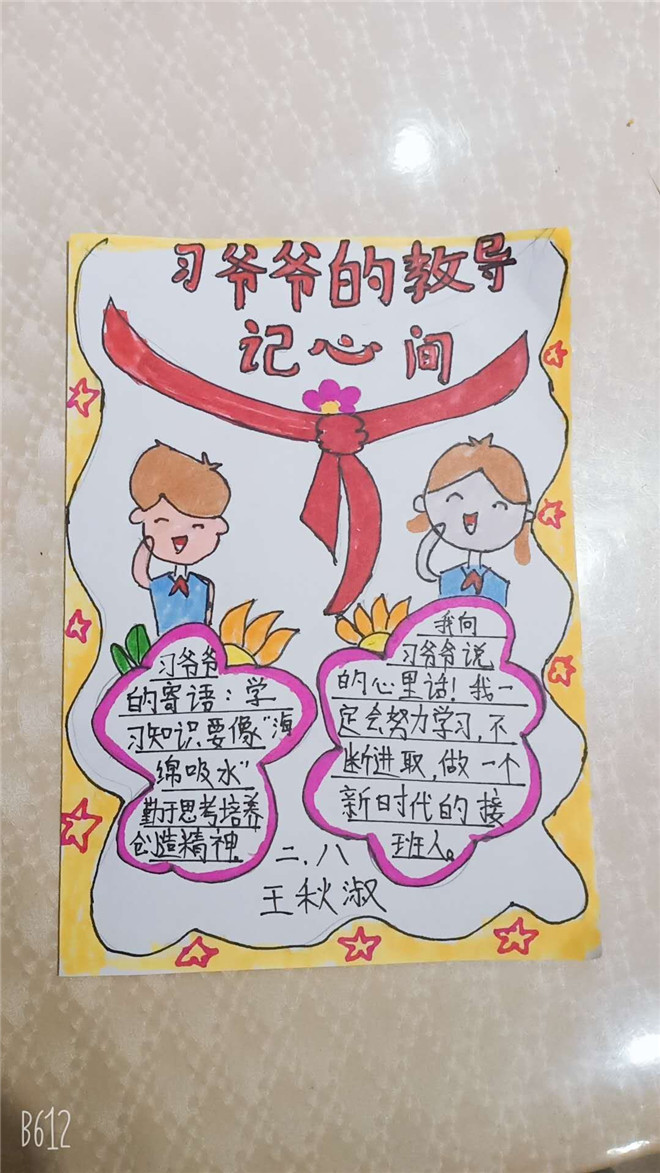 习爷爷的教导
记心间
习爷爷
的寄语：学
习知识要像“海
绵吸水”
勤于思考培养
创造精神.
我向
习爷爷说
的心里话！我一
定会努力学习,不
断进取,做一个
新时代的接
班人。
二.八
王秋淑
B612